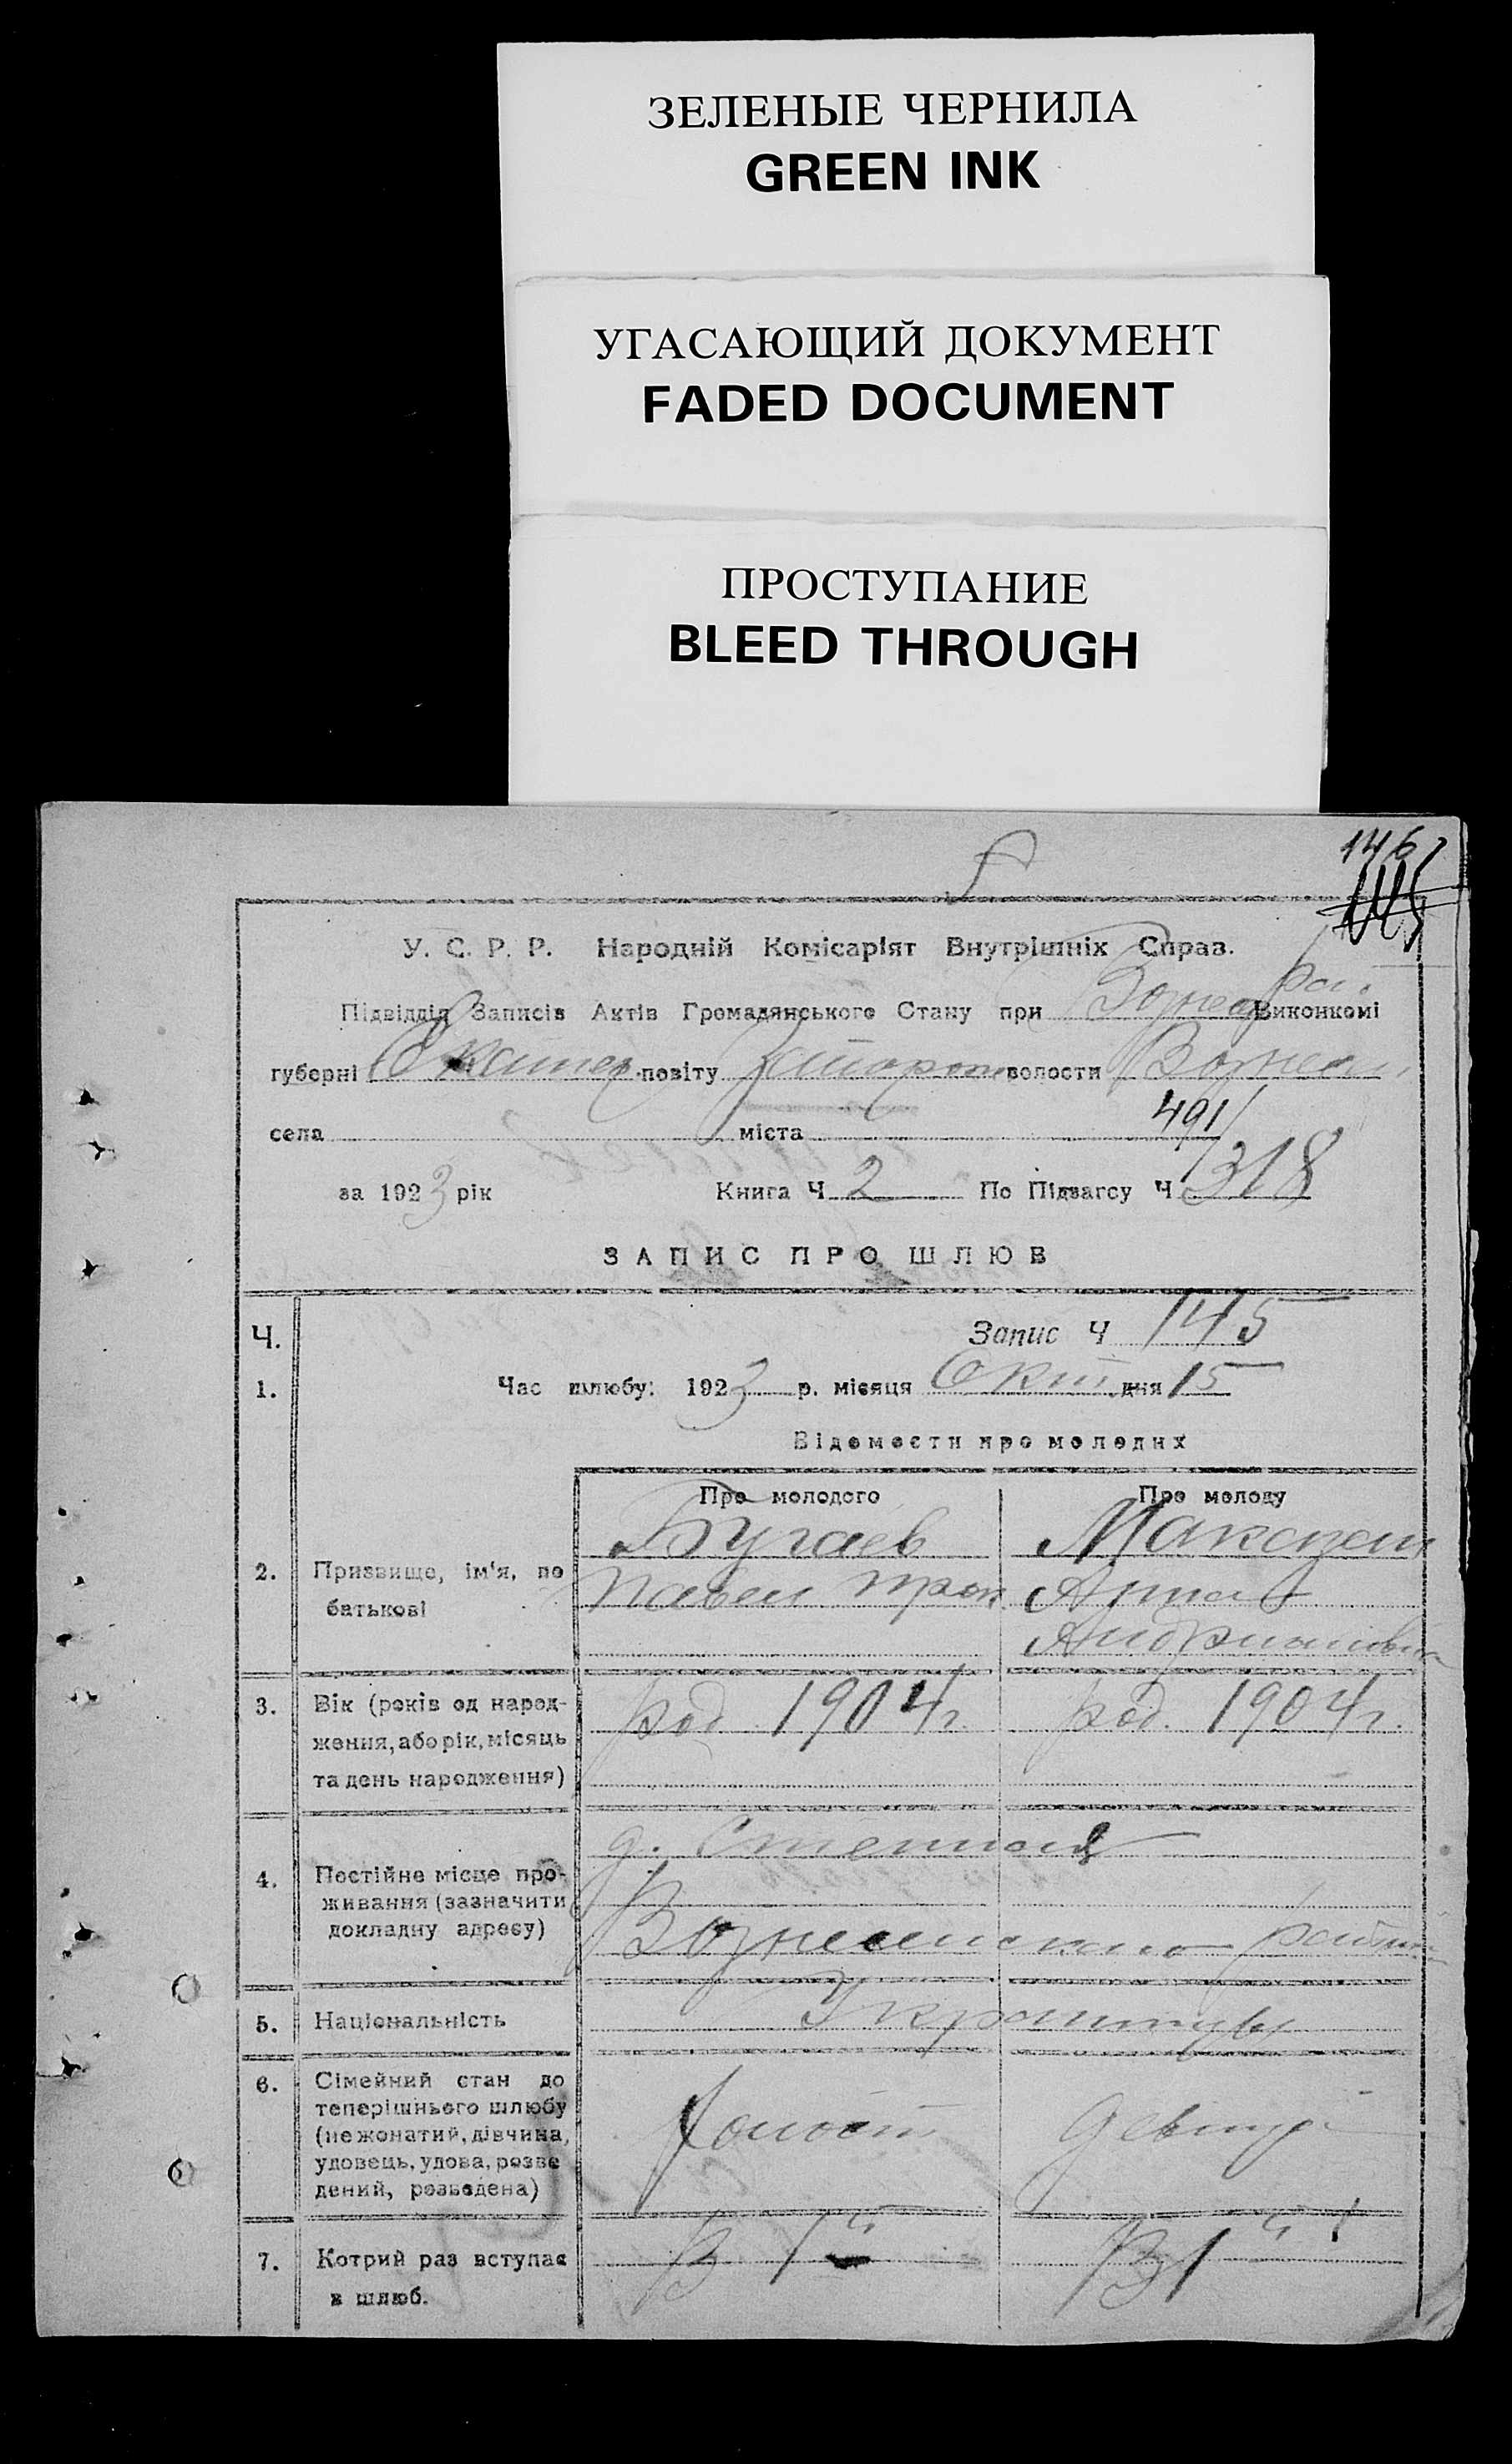 ЗЕЛЕНЫЕ ЧЕРНИЛА
GREEN INK
УГАСАЮЩИЙ ДОКУМЕНТ
FADED DOCUMENT
ПРОСТУПАНИЕ
BLEED THROUGH
146
У. С. Р. Р. Народній Комісаріят Внутрішніх Справ.
Підвідділ Записів Актів Громадянського Стану при Вознес рай. Виконкомі
губерні Екатер. повіту Запорож волости Вознесен
села міста
491
за 1923 рік Книга Ч 2 По Підзагсу Ч 318
ЗАПИС ПРО ШЛЮБ
Ч. Запис Ч 145
1. Час шлюбу: 1923 р. місяця Окт. дня 15
Відомости про молодих
Про молодого Про молоду
Бугаев
2. Призвище, ім'я, по
батькові
Павел
3. Вік (років од народ-
ження, або рік, місяць
та день народження)
род. 1904 г. род. 1904 г.
4. Постійне місце про-
живання (зазначити
докладну адресу)
д. Степная
Вознесенского
5. Національність
6. Сімейний стан до
теперішнього шлюбу
(не жонатий, дівчина,
удовець, удова, розве
дений, розведена)
Холост девица
7. Котрий раз вступає
в шлюб.
В 1й В 1й